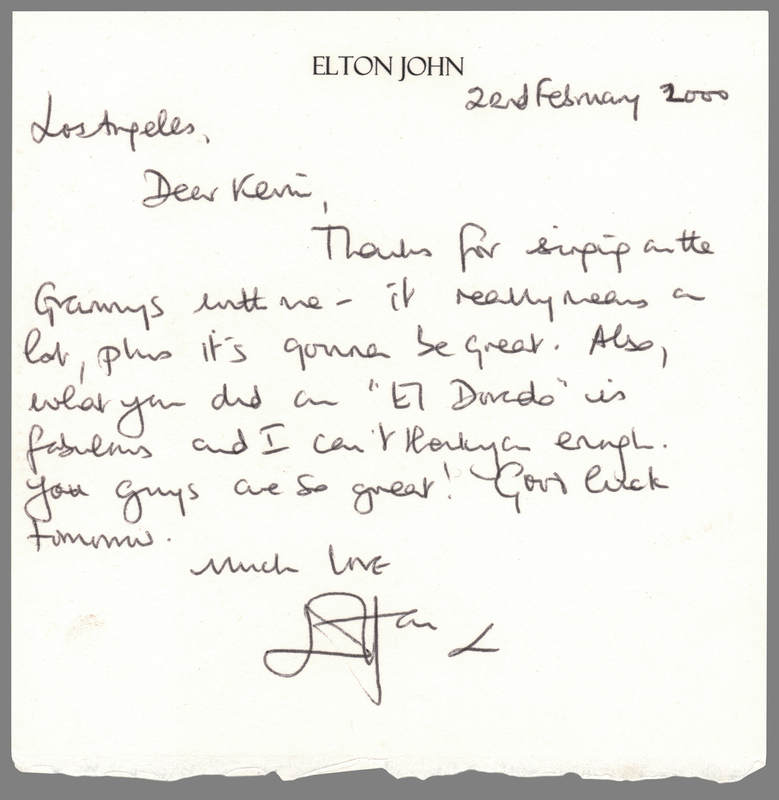 ELTON JOHN
22nd February 2000
Los Angeles,
Dear Kevin,
Thanks for singing on the
Grammys with me - it really means a
lot, plus it's gonna be great. Also,
what you did on "El Dorado" is
fabulous and I can't thank you enough.
You guys are so great! Good luck
tomorrow.
Much LOVE
Elton